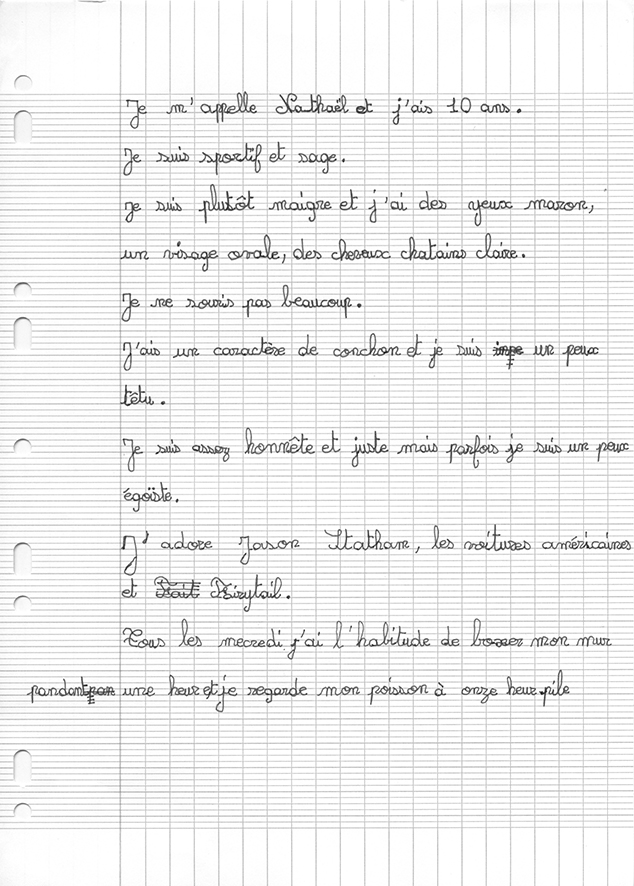 Je m'appelle Nathaël et j'ais 10 ans.
Je suis sportif et sage.
je suis plutôt maigre et j'ai des yeux maron,
un visage ovale, des cheveux chatains claire.
Je ne souris pas beaucoup.
J'ais un caractère de conchon et je suis un peux
têtu.
Je suis assez honnête et juste mais parfois je suis un peux
égoïste.
J'adore Jason Statham, les voitures américaines
et Fairytail.
Tous les mecredi j'ai l'habitude de boxer mon mur
pandant une heur et je regarde mon poisson à onze heur pile